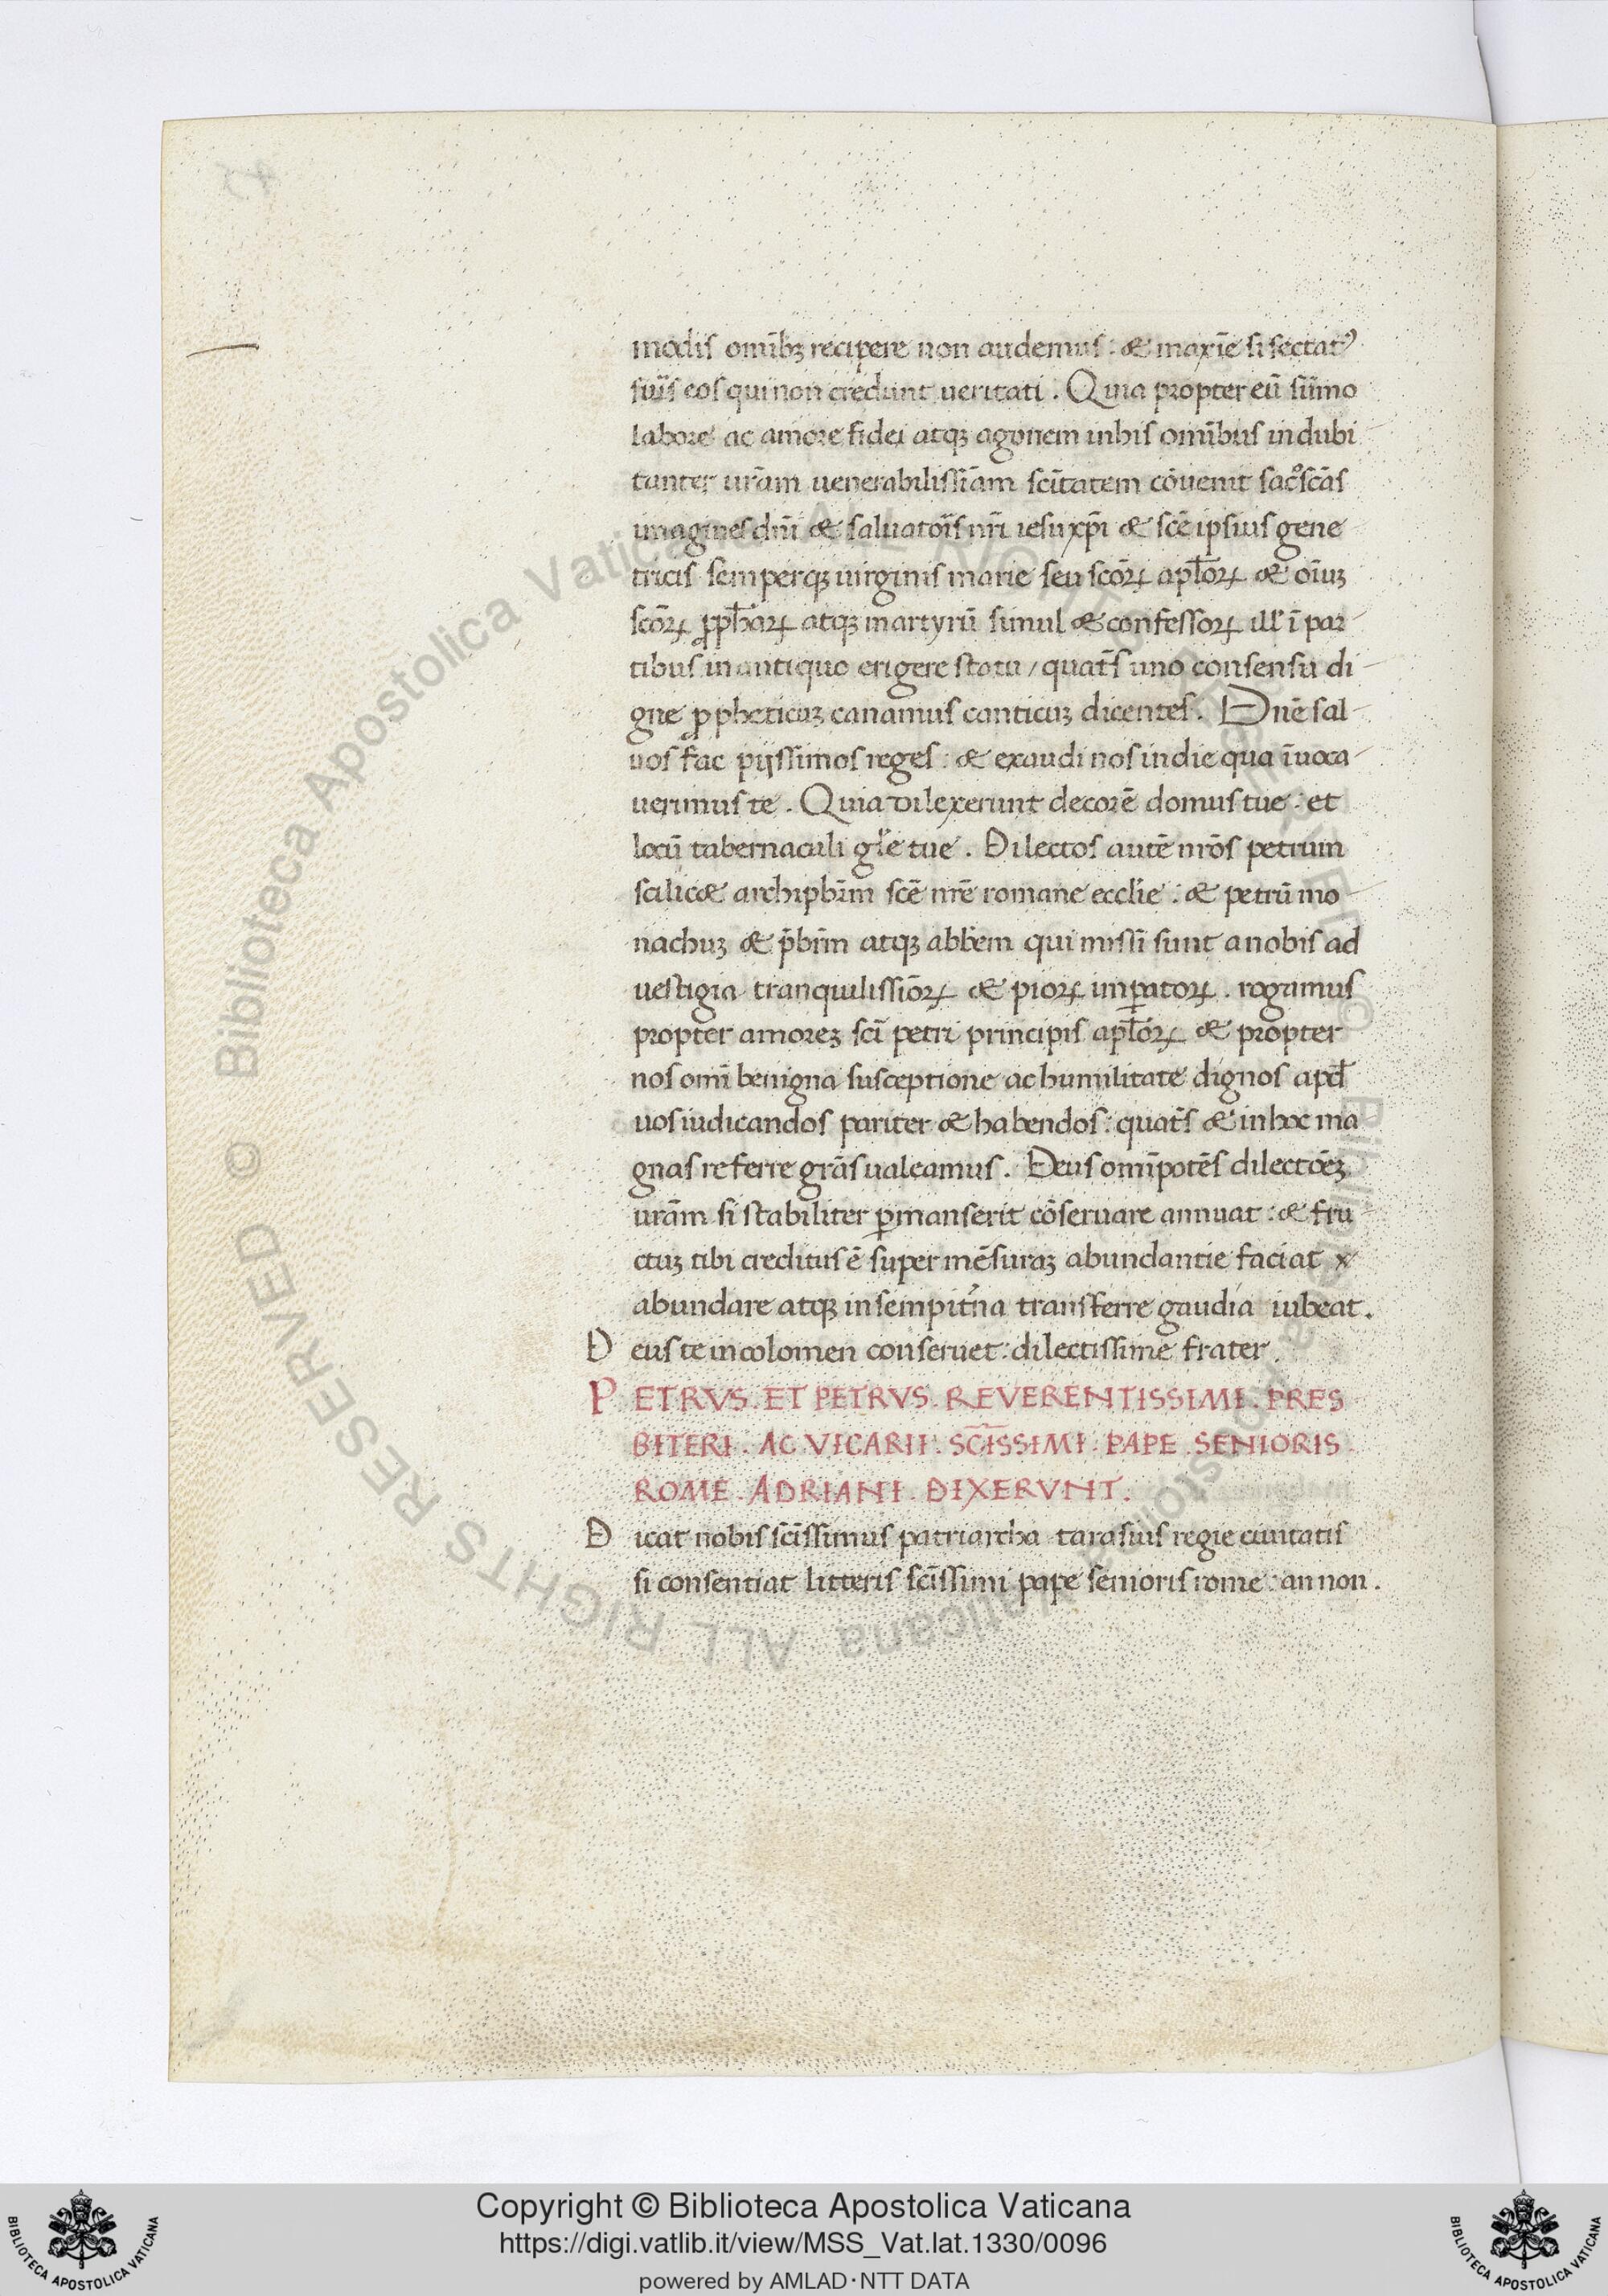 modis omībꝫ recipere non audemus : & maxīe si sectatꝰ
suīs eos qui non credunt ueritati . Quia propter eū sūmo
labore ac amore fidei atqꝫ agonem in his omībus indubi
tanter ur̄am uenerabilissīam scītatem cōuenit sacͦscās
imagines dn̄i & saluatoīs nr̄i iesu xp̄i & scē ipsius gene
tricis semperqꝫ uirginis marie seu scōꝝ apl̄oꝝ & oīuꝫ
scōꝝ ꝓph̄aꝝ atqꝫ martyrū simul & confessoꝝ ill' ī par
tibus in antiquo erigere statu / quat̄s uno consensu di
gne ꝓpheticuꝫ canamus canticuꝫ dicentes . Dn̄e sal
uos fac pijssimos reges : & exaudi nos in die qua īuoca
uerimus te . Quia dilexerunt decorē domus tue : et
locū tabernaculi gl̄e tue . Dilectos autē nr̄os petrum
scilic& archipbr̄m scē nr̄e romane eccl̄ie : & petrū mo
nachuꝫ & p̄br̄m atqꝫ abb̄em qui missi sunt a nobis ad
uestigia tranquilissīoꝝ & pioꝝ imꝑatoꝝ . rogamus
propter amoreꝫ scī petri principis apl̄oꝝ & propter
nos omī benigna susceptione ac humilitate dignos apd̄
uos iudicandos pariter & habendos : quat̄s & in hoc ma
gnas referre grās ualeamus . Deus omīpotēs dilectōeꝫ
ur̄am si stabiliter ꝑmanserit cōseruare annuat : & fru
ctuꝫ tibi creditus ē super mēsuraꝫ abundantie faciat x
abundare atqꝫ in sempit̄na transferre gaudia iubeat .
Deus te incolomen conseruet : dilectissime frater .
PETRVS . ET PETRVS . REVERENTISSIMI . PRES
BITERI . AC VICARII . SC̄ISSIMI . PAPE . SENIORIS
ROME . ADRIANI . DIXERVNT .
Dicat nobis scīssimus patriarcha tarasius regie ciuitatis
si consentiat litteris scīssimi pape senioris rome : an non .
© Biblioteca Apostolica Vaticana ALL RIGHTS RESERVED
Copyright © Biblioteca Apostolica Vaticana
https://digi.vatlib.it/view/MSS_Vat.lat.1330/0096
powered by AMLAD·NTT DATA
BIBLIOTECA APOSTOLICA VATICANA
BIBLIOTECA APOSTOLICA VATICANA